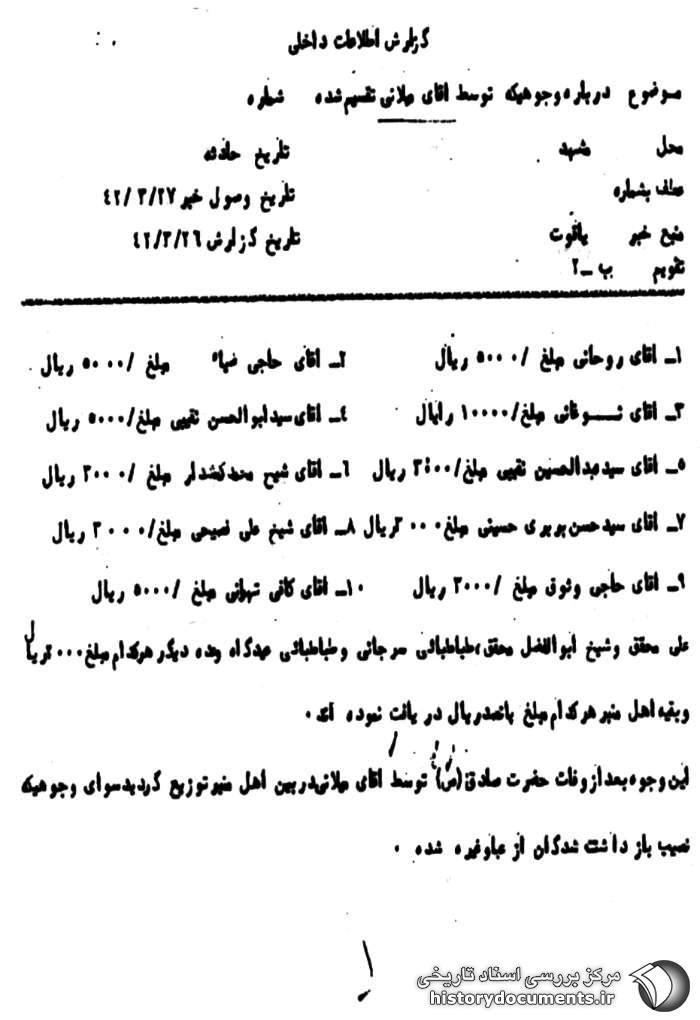 گزارش اطلاعات داخلی
موضوع درباره وجوهیکه توسط اقای میلانی تقسیم شده شماره
محل مشهد تاریخ حادثه
عطف بشماره تاریخ وصول خبر ۴۲/۳/۲۷
منبع خبر یاقوت تاریخ گزارش ۴۲/۳/۲۶
تقویم ب ـ ۲
۱ـ اقای روحانی مبلغ /۵۰۰۰ ریال ۲ـ اقای حاجی ضیاء مبلغ /۵۰۰۰ ریال
۳ـ اقای نـوقانی مبلغ /۱۰۰۰۰ رایال ۴ـ اقای سید ابوالحسن نقیبی مبلغ /۵۰۰۰ ریال
۵ـ اقای سید عبدالحسین نقیبی مبلغ /۳۰۰۰ ریال ۶ـ اقای شیخ محمد کفشدار مبلغ /۲۰۰۰ ریال
۷ـ اقای سید حسن بربری حسینی مبلغ ۲۰۰۰ ریال ۸ـ اقای شیخ علی نصیحی مبلغ /۲۰۰۰ ریال
۹ـ اقای حاجی وثوق مبلغ /۲۰۰۰ ریال ۱۰ـ اقای کافی تهرانی مبلغ /۵۰۰۰ ریال
علی محقق و شیخ ابوالفضل محقق، طباطبائی سرجانی و طباطبائی عیدگاه وعده دیگر هرکدام مبلغ ۲۰۰۰ ریال
و بقیه اهل منبر هرکدام مبلغ پانصد ریال دریافت نموده اند.
این وجوه بعد از وفات حضرت صادق (ص) توسط اقای میلانی در بین اهل منبر توزیع گردید سوای وجوهیکه
نصیب بازداشت شدگان از عبا و غیره شده .
مرکز بررسی اسناد تاریخی
historydocuments.ir